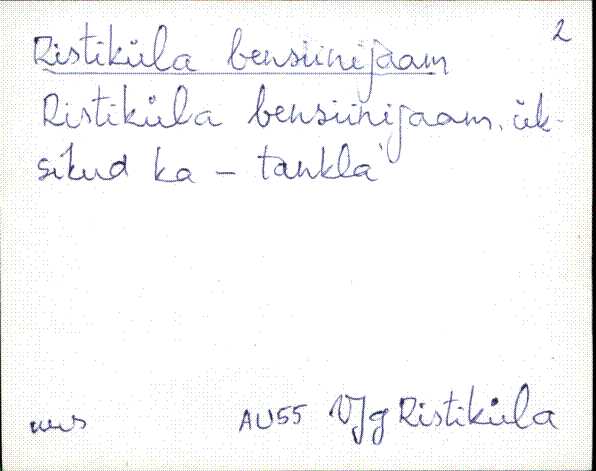 2
Ristiküla bensiinijaam
Ristiküla bensiinijaam, ük-
sikud ka - tankla
uus AU55 VJg Ristiküla